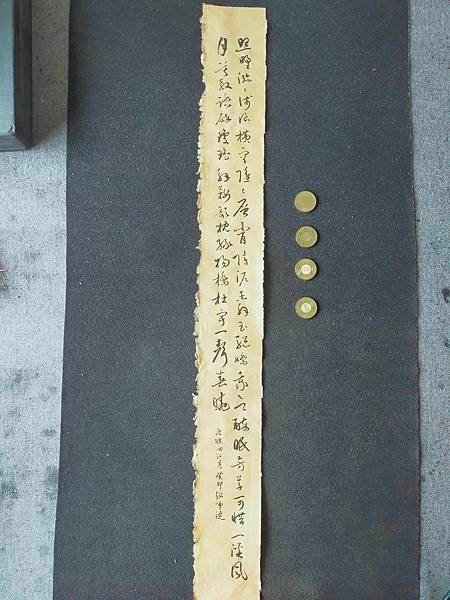 照野瀰々淺浪橫空隱々層霄障泥未解玉驄嬌我欲醉眠芳草可惜一溪風
月莫教踏碎瓊瑤解鞍欹枕綠楊橋杜宇一聲春曉
西江月癸卯